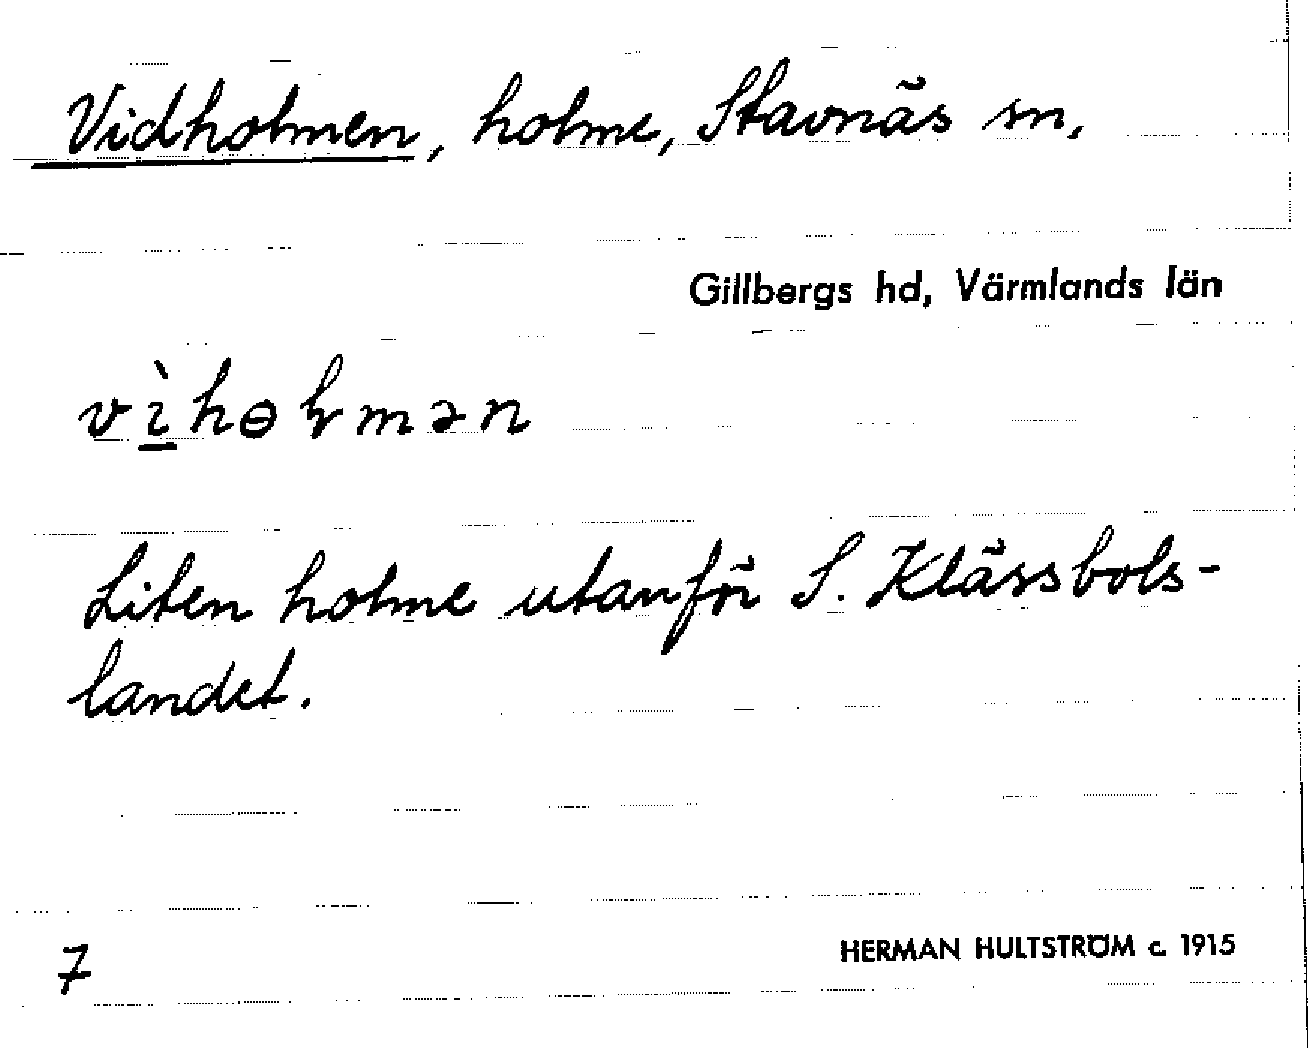 Vidholmen, holme, Stavnäs sn,
Gillbergs hd, Värmlands län
vìhɵɽmən
Liten holme utanför S. Klässbols-
landet.
7
HERMAN HULTSTRÖM c. 1915